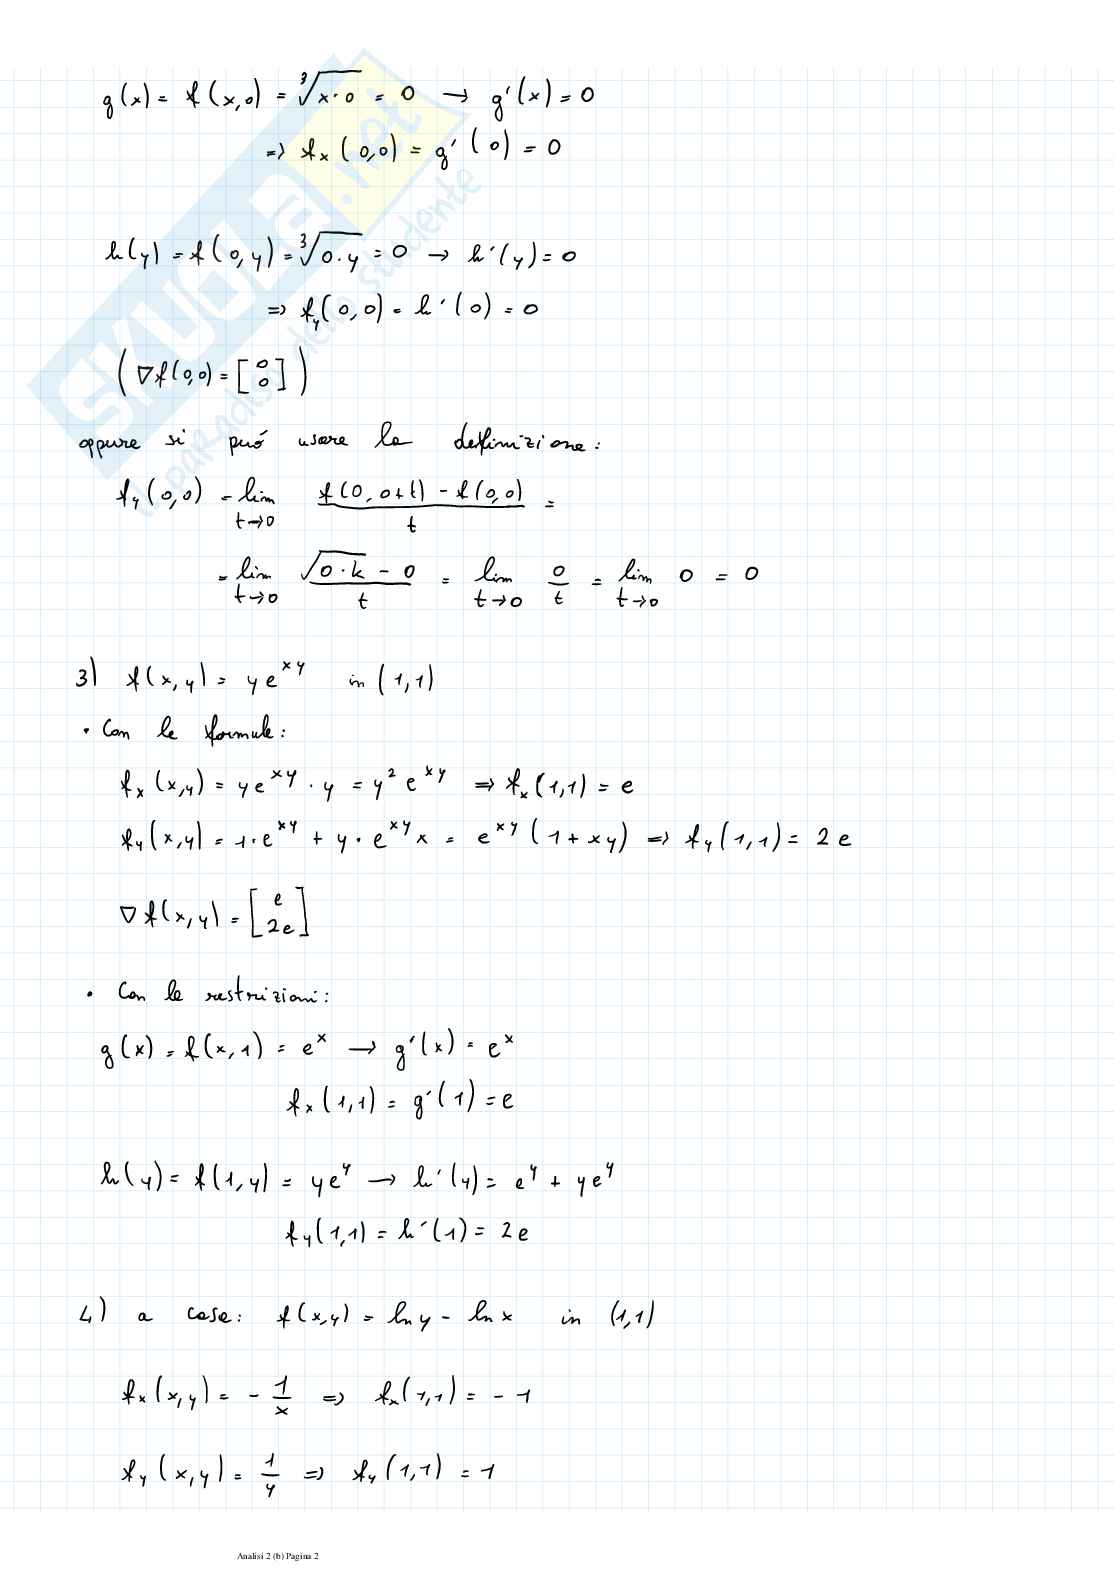 g(x) = f(x,0) = ∛(x·0) = 0 → g'(x) = 0
=> fx(0,0) = g'(0) = 0
h(y) = f(0,y) = ∛(0·y) = 0 → h'(y) = 0
=> fy(0,0) = h'(0) = 0
(∇f(0,0) = [0 0])
oppure si può usare la definizione:
fy(0,0) = lim t→0 (f(0,0+t) - f(0,0))/t =
= lim t→0 (√(0·k) - 0)/t = lim t→0 0/t = lim t→0 0 = 0
3) f(x,y) = ye^xy in (1,1)
• Con le formule:
fx(x,y) = ye^xy · y = y² e^xy => fx(1,1) = e
fy(x,y) = 1·e^xy + y·e^xy x = e^xy (1+xy) => fy(1,1) = 2e
∇f(x,y) = [e 2e]
• Con le restrizioni:
g(x) = f(x,1) = e^x → g'(x) = e^x
fx(1,1) = g'(1) = e
h(y) = f(1,y) = ye^y → h'(y) = e^y + ye^y
fy(1,1) = h'(1) = 2e
4) a casa: f(x,y) = ln y - ln x in (1,1)
fx(x,y) = - 1/x => fx(1,1) = -1
fy(x,y) = 1/y => fy(1,1) = 1
Analisi 2 (b) Pagina 2
SKUOLA.net
il paradiso dello studente